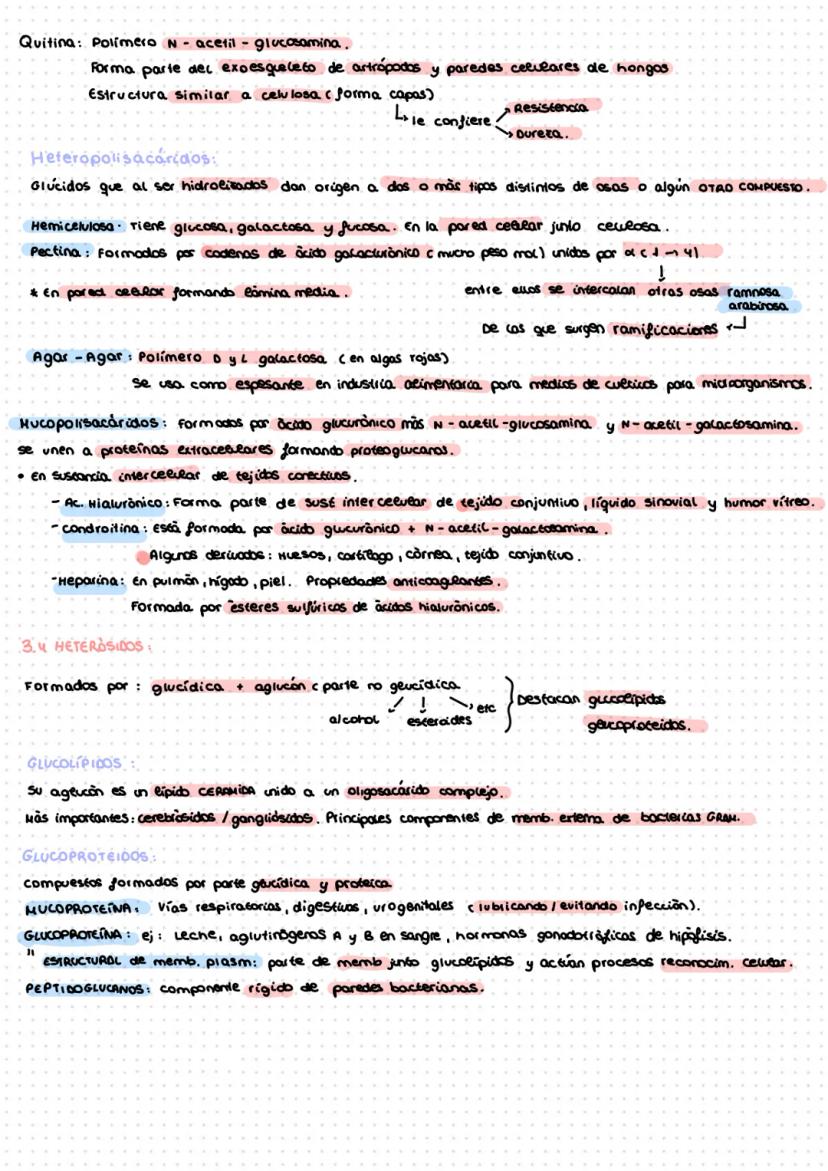 Quitina: Polímero N - acetil - glucosamina.
Forma parte del exoesqueleto de artrópodos y paredes celulares de hongos
Estructura similar a celulosa (forma capas)
le confiere Resistencia
Dureza.
Heteropolisacáridos:
Glúcidos que al ser hidrolizados dan origen a dos o más tipos distintos de osas o algún OTRO COMPUESTO.
Hemicelulosa. Tiene glucosa, galactosa y fucosa. En la pared celular junto celulosa.
Pectina: Formados por cadenas de ácido galacturónico (mucro peso mol) unidos por α (1 → 4)
* En pared celular formando lámina media.
entre ellos se intercalan otras osas ramnosa
arabinosa
De las que surgen ramificaciones
Agar - Agar: Polímero D y L galactosa (en algas rojas)
Se usa como espesante en industria alimentaria para medios de cultivos para microorganismos.
Mucopolisacáridos: Formados por ácido glucurónico más N - acetil - glucosamina y N - acetil - galactosamina.
se unen a proteínas extracelulares formando proteoglucanos.
• En sustancia intercelular de tejidos conectivos.
- Ac. Hialurónico: Forma parte de sust intercelular de tejido conjuntivo, líquido sinovial y humor vítreo.
- Condroitina: Está formada por ácido glucurónico + N - acetil - galactosamina.
Algunos derivados: Huesos, cartílago, córnea, tejido conjuntivo.
- Heparina: En pulmón, hígado, piel. Propiedades anticoagulantes.
Formada por ésteres sulfúricos de ácidos hialurónicos.
3.4 HETERÓSIDOS:
Formados por: glucídica + aglucón (parte no glucídica
alcohol esteroides etc
Destacan glucolípidos
glucoproteidos.
GLUCOLÍPIDOS:
Su aglucón es un lípido CERAMIDA unido a un oligosacárido complejo.
Más importantes: cerebrósidos / gangliósidos. Principales componentes de memb. externa de bacterias GRAM.
GLUCOPROTEIDOS:
Compuestos formados por parte glucídica y proteica
MUCOPROTEÍNA: Vías respiratorias, digestivas, urogenitales (lubricando / evitando infección).
GLUCOPROTEÍNA: ej: Leche, aglutinógenos A y B en sangre, hormonas gonadotróficas de hipófisis.
" ESTRUCTURAL de memb. plasm: parte de memb junto glucolípidos y actúan procesos reconocim. celular.
PEPTIDOGLUCANOS: componente rígido de paredes bacterianas.